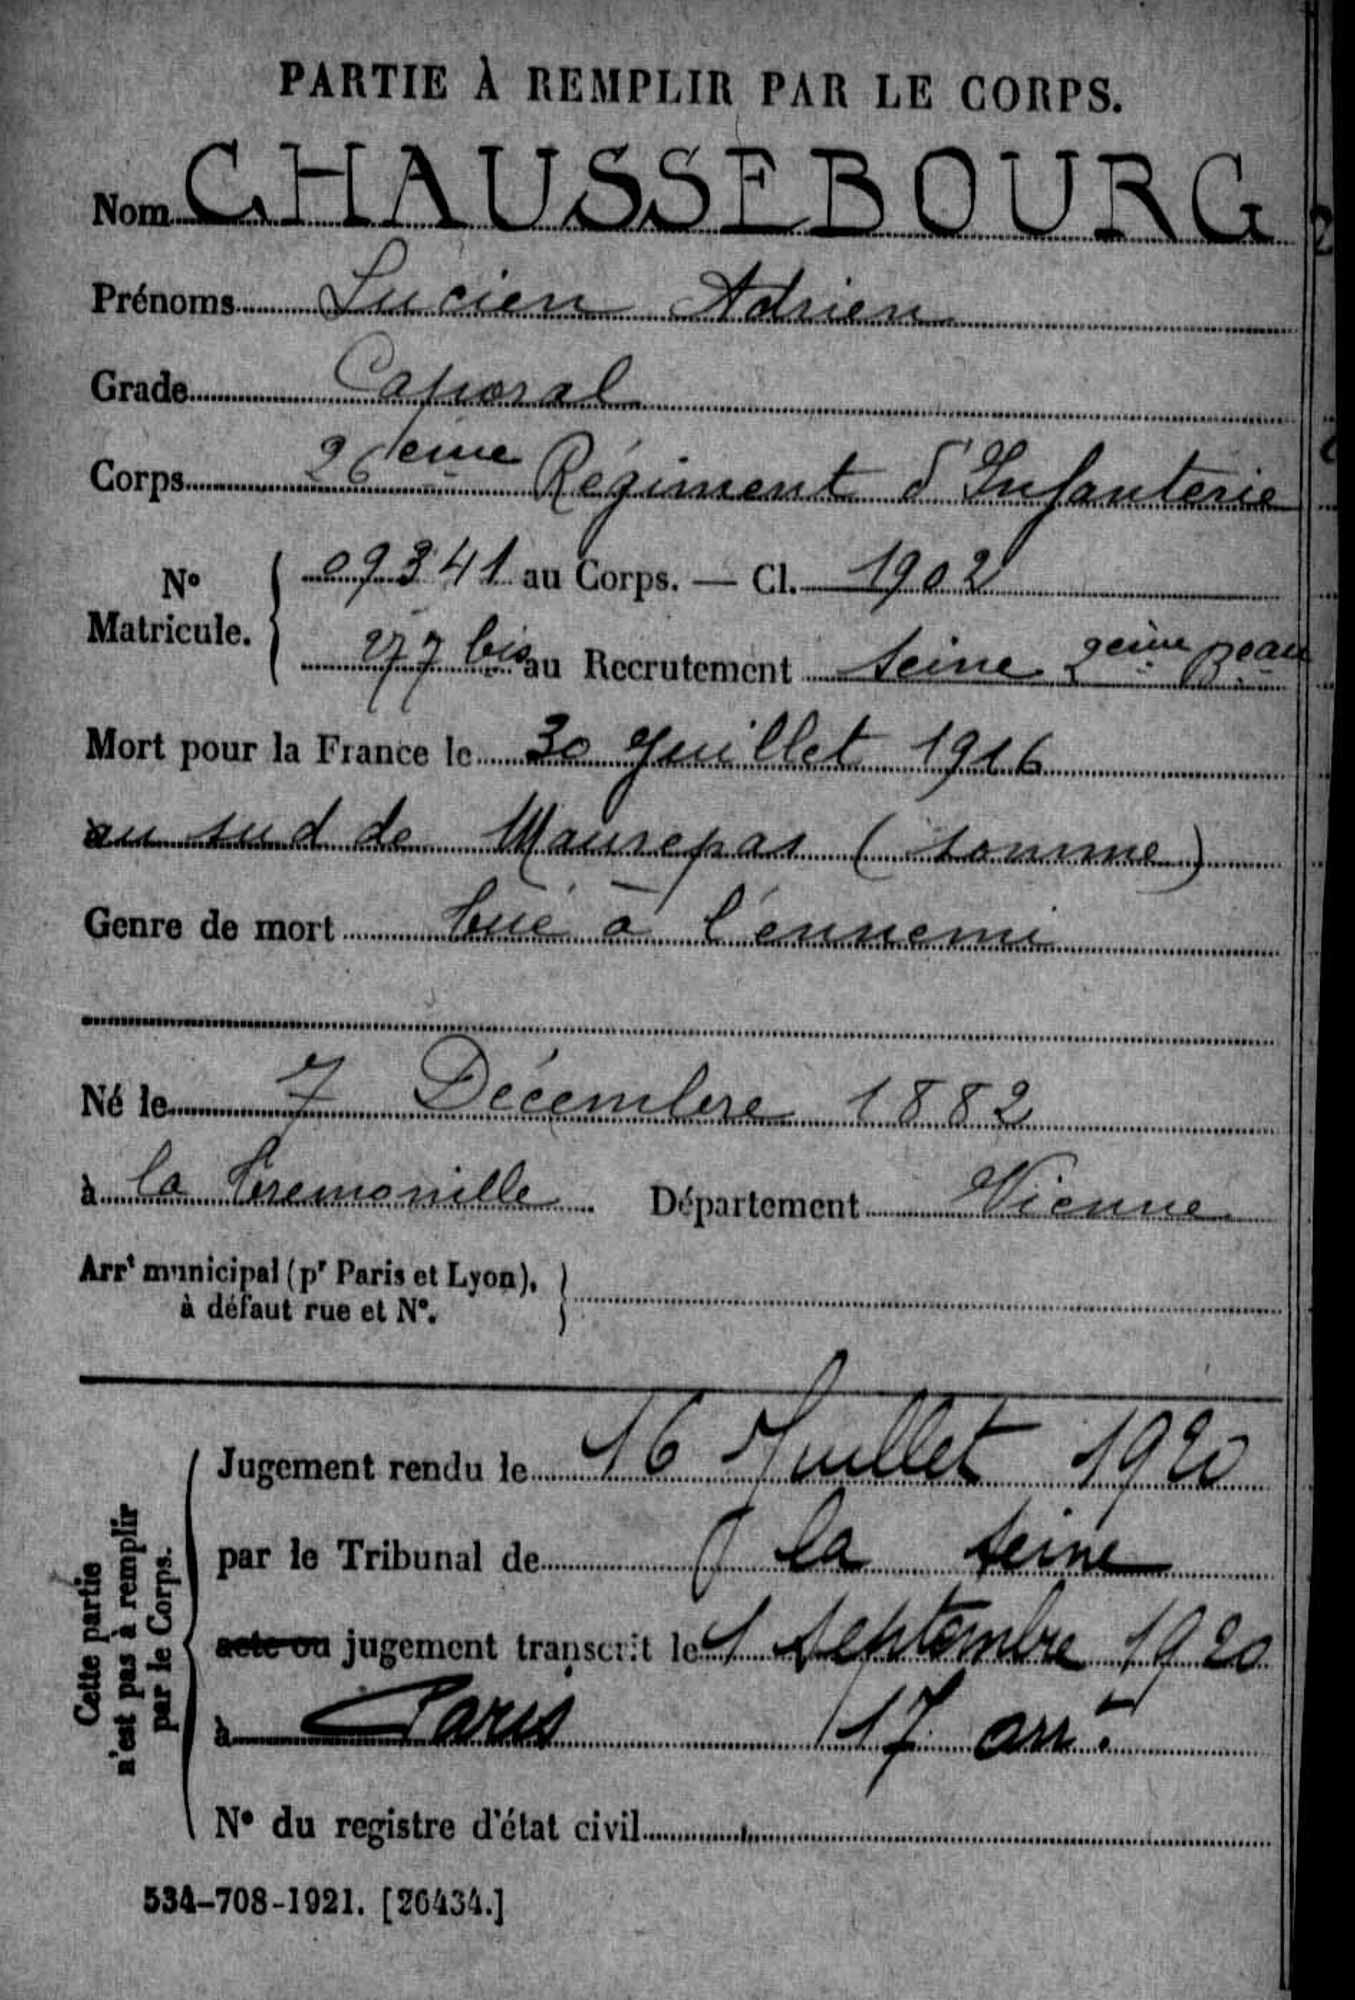 PARTIE À REMPLIR PAR LE CORPS.
Nom CHAUSSEBOURG
Prénoms Lucien Adrien
Grade Caporal
Corps 26eme Régiment d'Infanterie
No Matricule. { 09341 au Corps. — Cl. 1902
277 bis au Recrutement Seine 2eme Beau
Mort pour la France le 30 Juillet 1916
au sud de Maurepas (somme)
Genre de mort tué à l'ennemi
Né le 7 Décembre 1882
à la Tremouille Département Vienne
Arrt municipal (pr Paris et Lyon), }
à défaut rue et No.
Cette partie
n'est pas à remplir
par le Corps.
Jugement rendu le 16 Juillet 1920
par le Tribunal de la Seine
acte ou jugement transcrit le 1 Septembre 1920
à Paris 17 arrt
No du registre d'état civil
534-708-1921. [26434.]